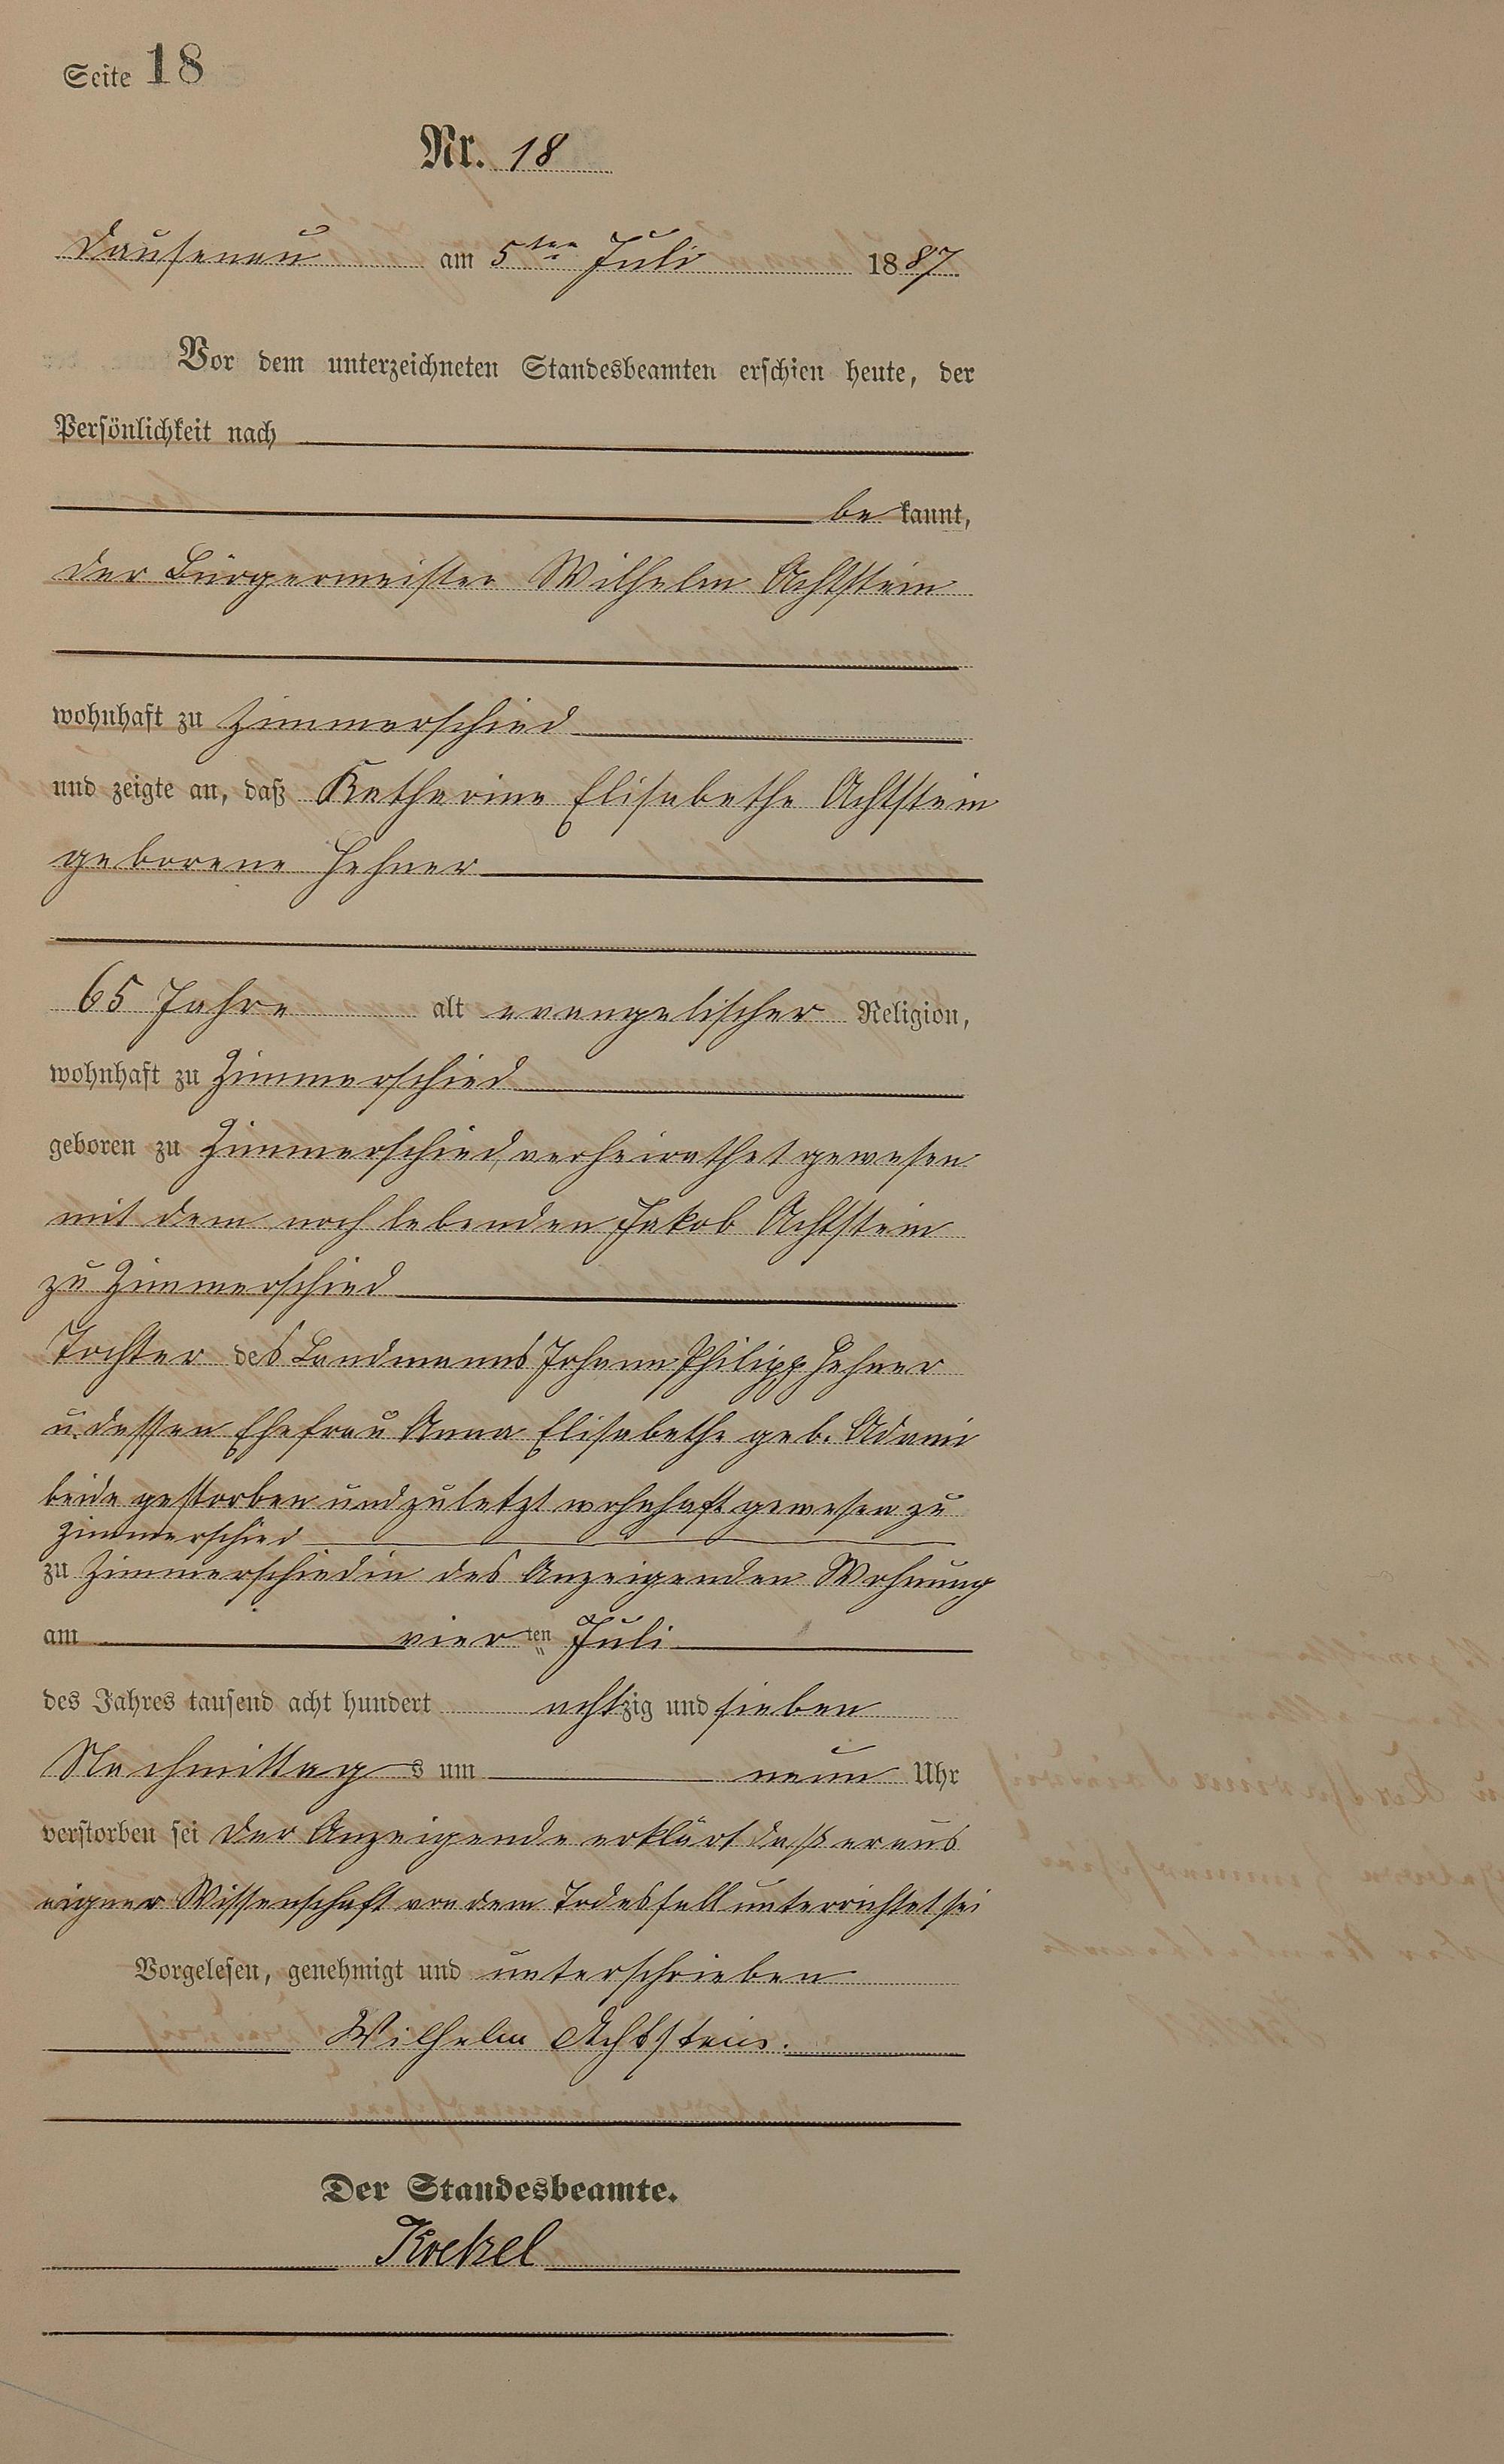 Seite 18
Nr. 18
Dausenau am 5ten Juli 1887
Vor dem unterzeichneten Standesbeamten erschien heute, der
Persönlichkeit nach
bekannt,
der Bürgermeister Wilhelm Achtstein
wohnhaft zu Zimmerschied
und zeigte an, daß Katharine Elisabethe Achtstein
geborene Hehner
65 Jahre alt evangelischer Religion,
wohnhaft zu Zimmerschied
geboren zu Zimmerschied, verheirathet gewesen
mit dem noch lebenden Jakob Achtstein
zu Zimmerschied
Tochter des Landmanns Johann Philipp Hehner
u. dessen Ehefrau Anna Elisabethe geb. Adami
beide gestorben und zuletzt wohnhaft gewesen zu
Zimmerschied
zu Zimmerschied in des Anzeigenden Wohnung
am vierten Juli
des Jahres tausend acht hundert achtzig und sieben
Nachmittags um neun Uhr
verstorben sei Der Anzeigende erklärt daß er aus
eigner Wissenschaft von dem Todesfall unterrichtet sei
Vorgelesen, genehmigt und unterschrieben
Wilhelm Achtstein.
Der Standesbeamte.